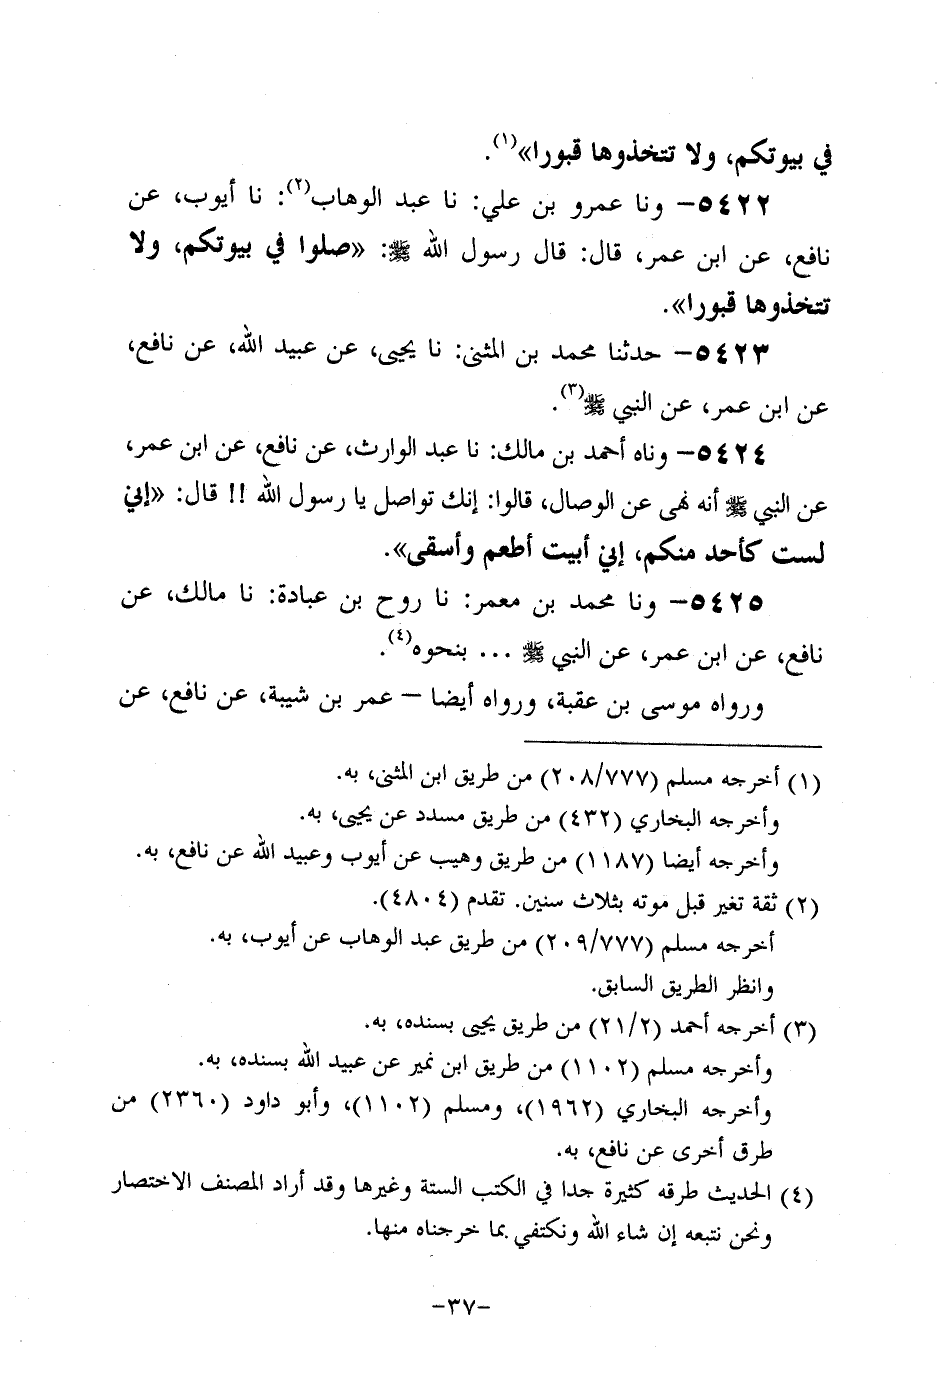 في بيوتكم، ولا تتخذوها قبورا»(١).
٥٤٢٢– ونا عمرو بن علي: نا عبد الوهاب(٢): نا أيوب، عن
نافع، عن ابن عمر، قال: قال رسول الله ﷺ: «صلوا في بيوتكم، ولا
تتخذوها قبورا».
٥٤٢٣– حدثنا محمد بن المثنى: نا يحيى، عن عبيد الله، عن نافع،
عن ابن عمر، عن النبي ﷺ(٣).
٥٤٢٤– وناه أحمد بن مالك: نا عبد الوارث، عن نافع، عن ابن عمر،
عن النبي ﷺ أنه نهى عن الوصال، قالوا: إنك تواصل يا رسول الله !! قال: «إني
لست كأحد منكم، إني أبيت أطعم وأسقى».
٥٤٢٥– ونا محمد بن معمر: نا روح بن عبادة: نا مالك، عن
نافع، عن ابن عمر، عن النبي ﷺ ... بنحوه(٤).
ورواه موسى بن عقبة، ورواه أيضا – عمر بن شيبة، عن نافع، عن
(١) أخرجه مسلم (٢٠٨/٧٧٧) من طريق ابن المثنى، به.
وأخرجه البخاري (٤٣٢) من طريق مسدد عن يحيى، به.
وأخرجه أيضا (١١٨٧) من طريق وهيب عن أيوب وعبيد الله عن نافع، به.
(٢) ثقة تغير قبل موته بثلاث سنين. تقدم (٤٨٠٤).
أخرجه مسلم (٢٠٩/٧٧٧) من طريق عبد الوهاب عن أيوب، به.
وانظر الطريق السابق.
(٣) أخرجه أحمد (٢١/٢) من طريق يحيى بسنده، به.
وأخرجه مسلم (١١٠٢) من طريق ابن نمير عن عبيد الله بسنده، به.
وأخرجه البخاري (١٩٦٢)، ومسلم (١١٠٢)، وأبو داود (٢٣٦٠) من
طرق أخرى عن نافع، به.
(٤) الحديث طرقه كثيرة جدا في الكتب الستة وغيرها وقد أراد المصنف الاختصار
ونحن نتبعه إن شاء الله ونكتفي بما خرجناه منها.
–٣٧–